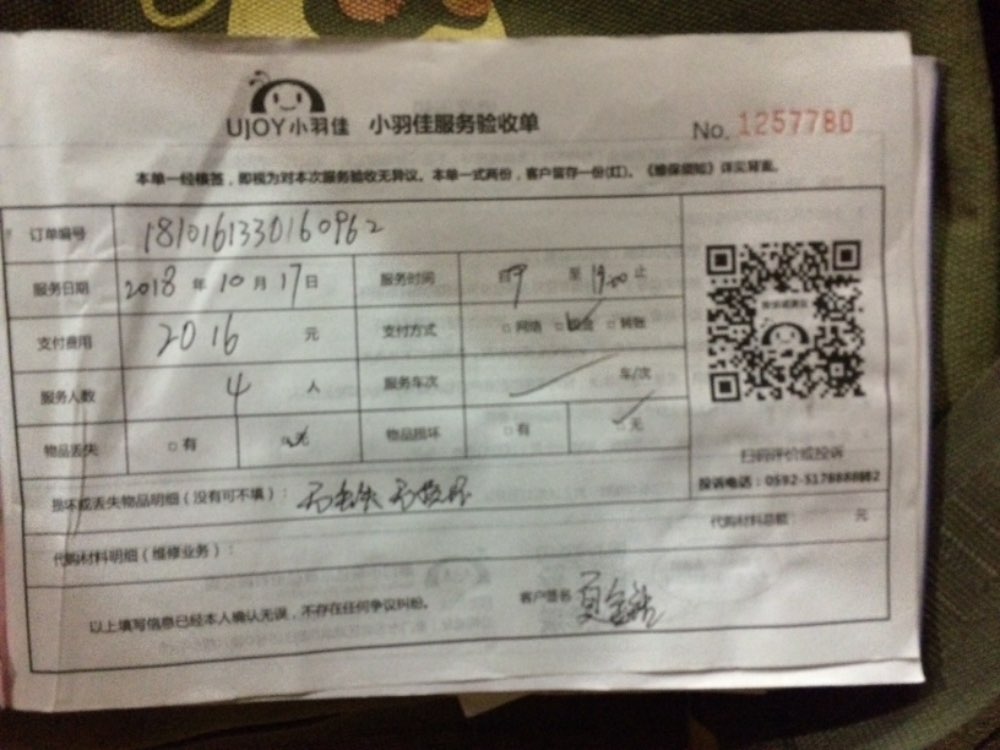 UJOY小羽佳 小羽佳服务验收单 No. 1257780
本单一经核签，即视为对本次服务验收无异议。本单一式两份，客户留存一份(红)。《维保须知》详见背面。
订单编号 1810161330160962
服务日期 2018 年 10 月 17 日 服务时间 至 19:00 止
支付费用 2016 元 支付方式 □ 网络 □ 现金 □ 转账
服务人数 4 人 服务车次 车/次
物品丢失 □ 有 无 物品损坏 □ 有 无
扫码评价或投诉
投诉电话：0592-5176888
损坏或丢失物品明细（没有可不填）： 无丢失 无损坏
代购材料总额： 元
代购材料明细（维修业务）：
以上填写信息已经本人确认无误，不存在任何争议纠纷。 客户签名